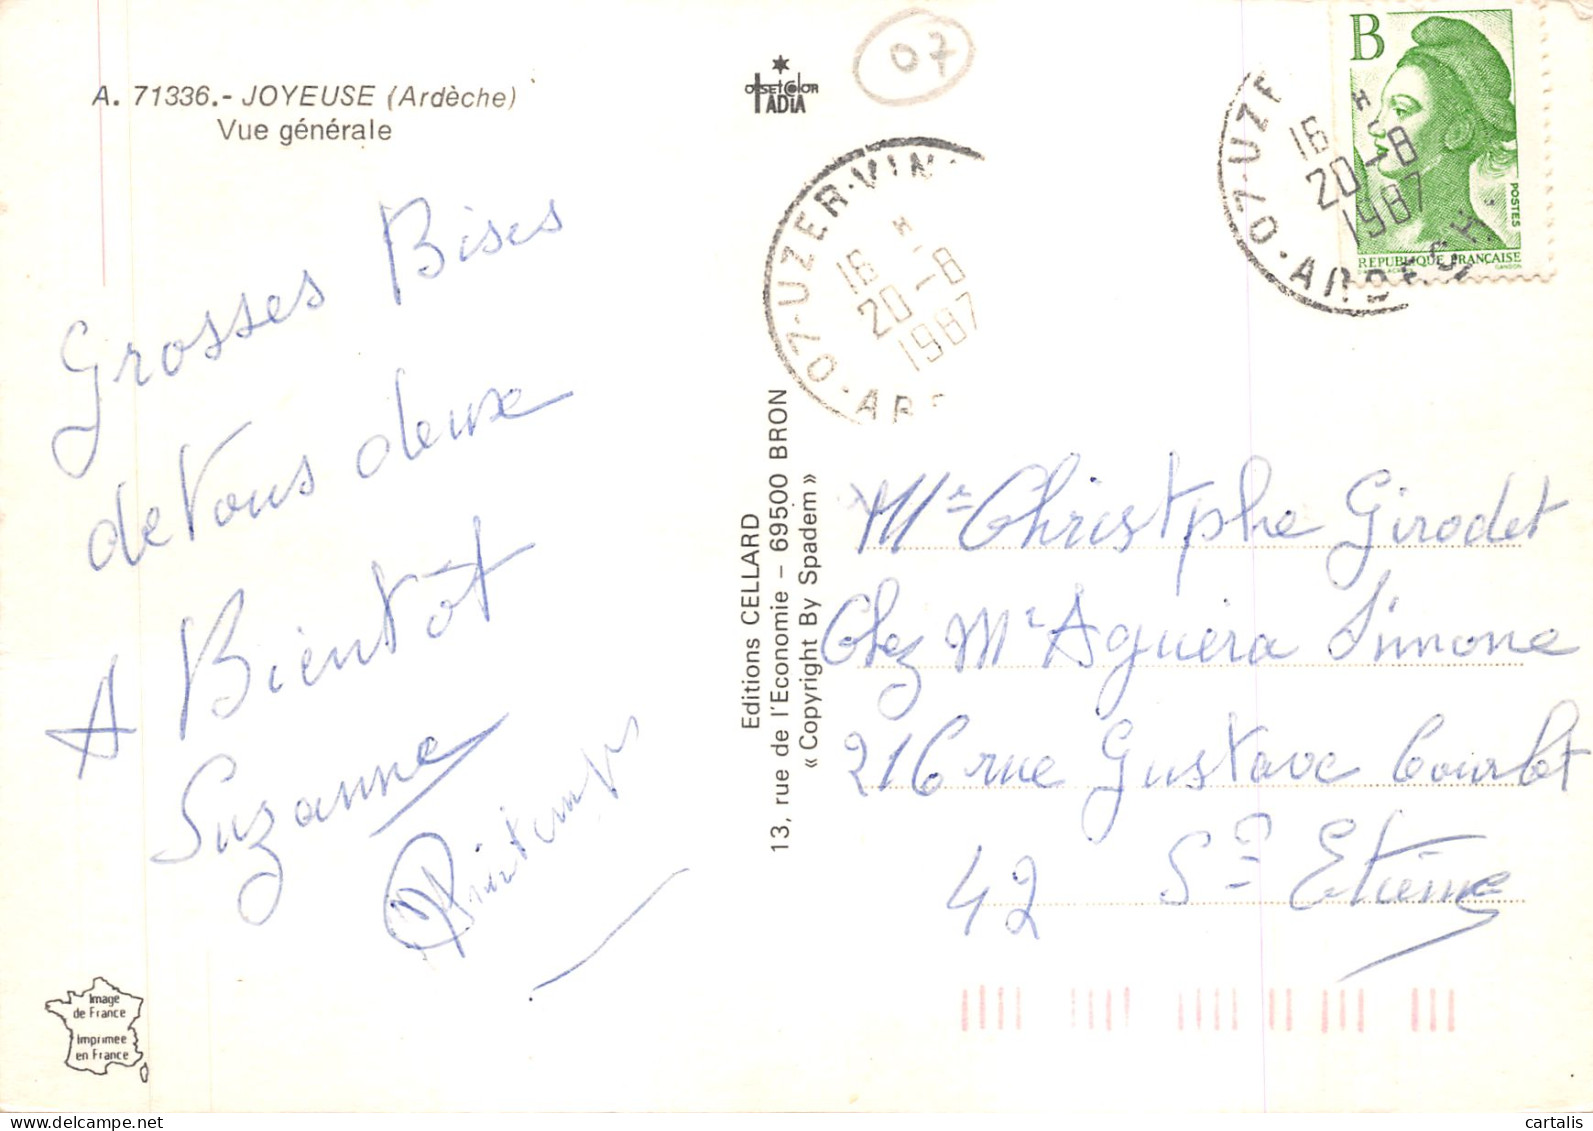 A. 71336.- JOYEUSE (Ardèche)
Vue générale
Grosses Bises
de Vous deux
A Bientôt
Suzanne
Printemps
Image
de France
Imprimee
en France
OffsetColor
IADIA
07
07-UZER-VIN
16 H
20-8
1987
ARD
Editions CELLARD
13, rue de l'Economie – 69500 BRON
« Copyright By Spadem »
B
POSTES
REPUBLIQUE FRANÇAISE
GANDON
07-UZE
16 H
20-8
1987
ARDECH
Mr Christphe Girodet
Chez Mr Aguera Simone
216 rue Gustave Courbet
42 St Etienne
cartalis
www.delcampe.net